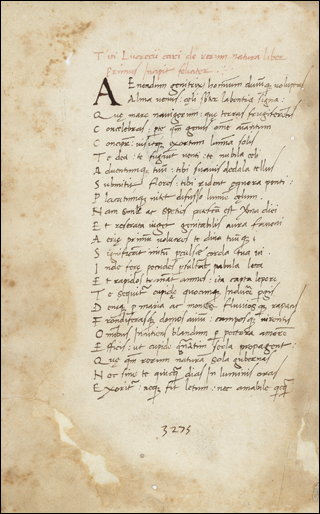 Titi Lucretii cari de rerum natura liber
Primus Incipit foeliciter.
AEneadum genitrix hominum diuumq; uoluptas
Alma uenus: celi subter labentia signa:
Que mare nauigerum: que terras frugiferentis
Concelebras: per quom genus omne animantum
Concipitur: uisitque exortum lumina solis
Te dea: te fugiunt uenti: te nubila celi
Aduentumque tuum: tibi suauis dedala tellus
Submittit flores: tibi rident equora ponti:
Placatumque nitet diffuso lumine celum.
Nam simul ac species patefacta est uerna diei
Et reserata uiget genitabilis aura fauoni
Aerie primum uolucres te diua tuumq;
Significant initum perculse corda tua ui.
Inde fere pecudes persultant pabula leta
Et rapidos tranant amnis: ita capta lepore
Te sequitur cupide quocunque inducere pergis
Denique per maria ac montes fluuiosque rapaces
Frondiferasque domos auium: camposque uirentis
Omnibus incutiens blandum per pectora amorem
Efficis: ut cupide generatim secla propagent:
Que quoniam rerum natura sola gubernas
Nec sine te quicquam dias in luminis oras
Exoritur: neque fit letum: nec amabile quicquam
3275